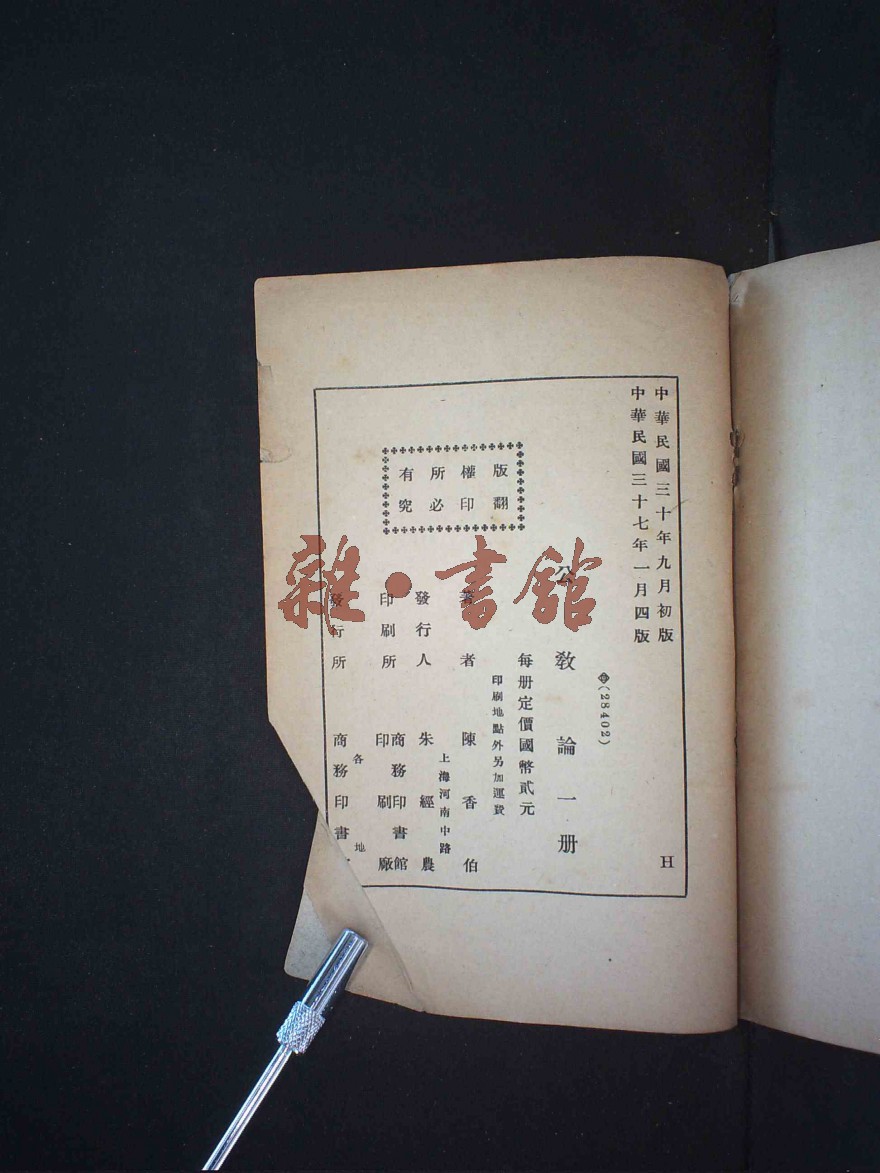 中華民國三十年九月初版
中華民國三十七年一月四版
H
(28402)
公教論一册
每册定價國幣貳元
印刷地點外另加運費
版權所有
翻印必究
著者 陳香伯
上海河南中路
發行人 朱經農
印刷所 商務印書館
印刷廠
各地
發行所 商務印書
雜·書館